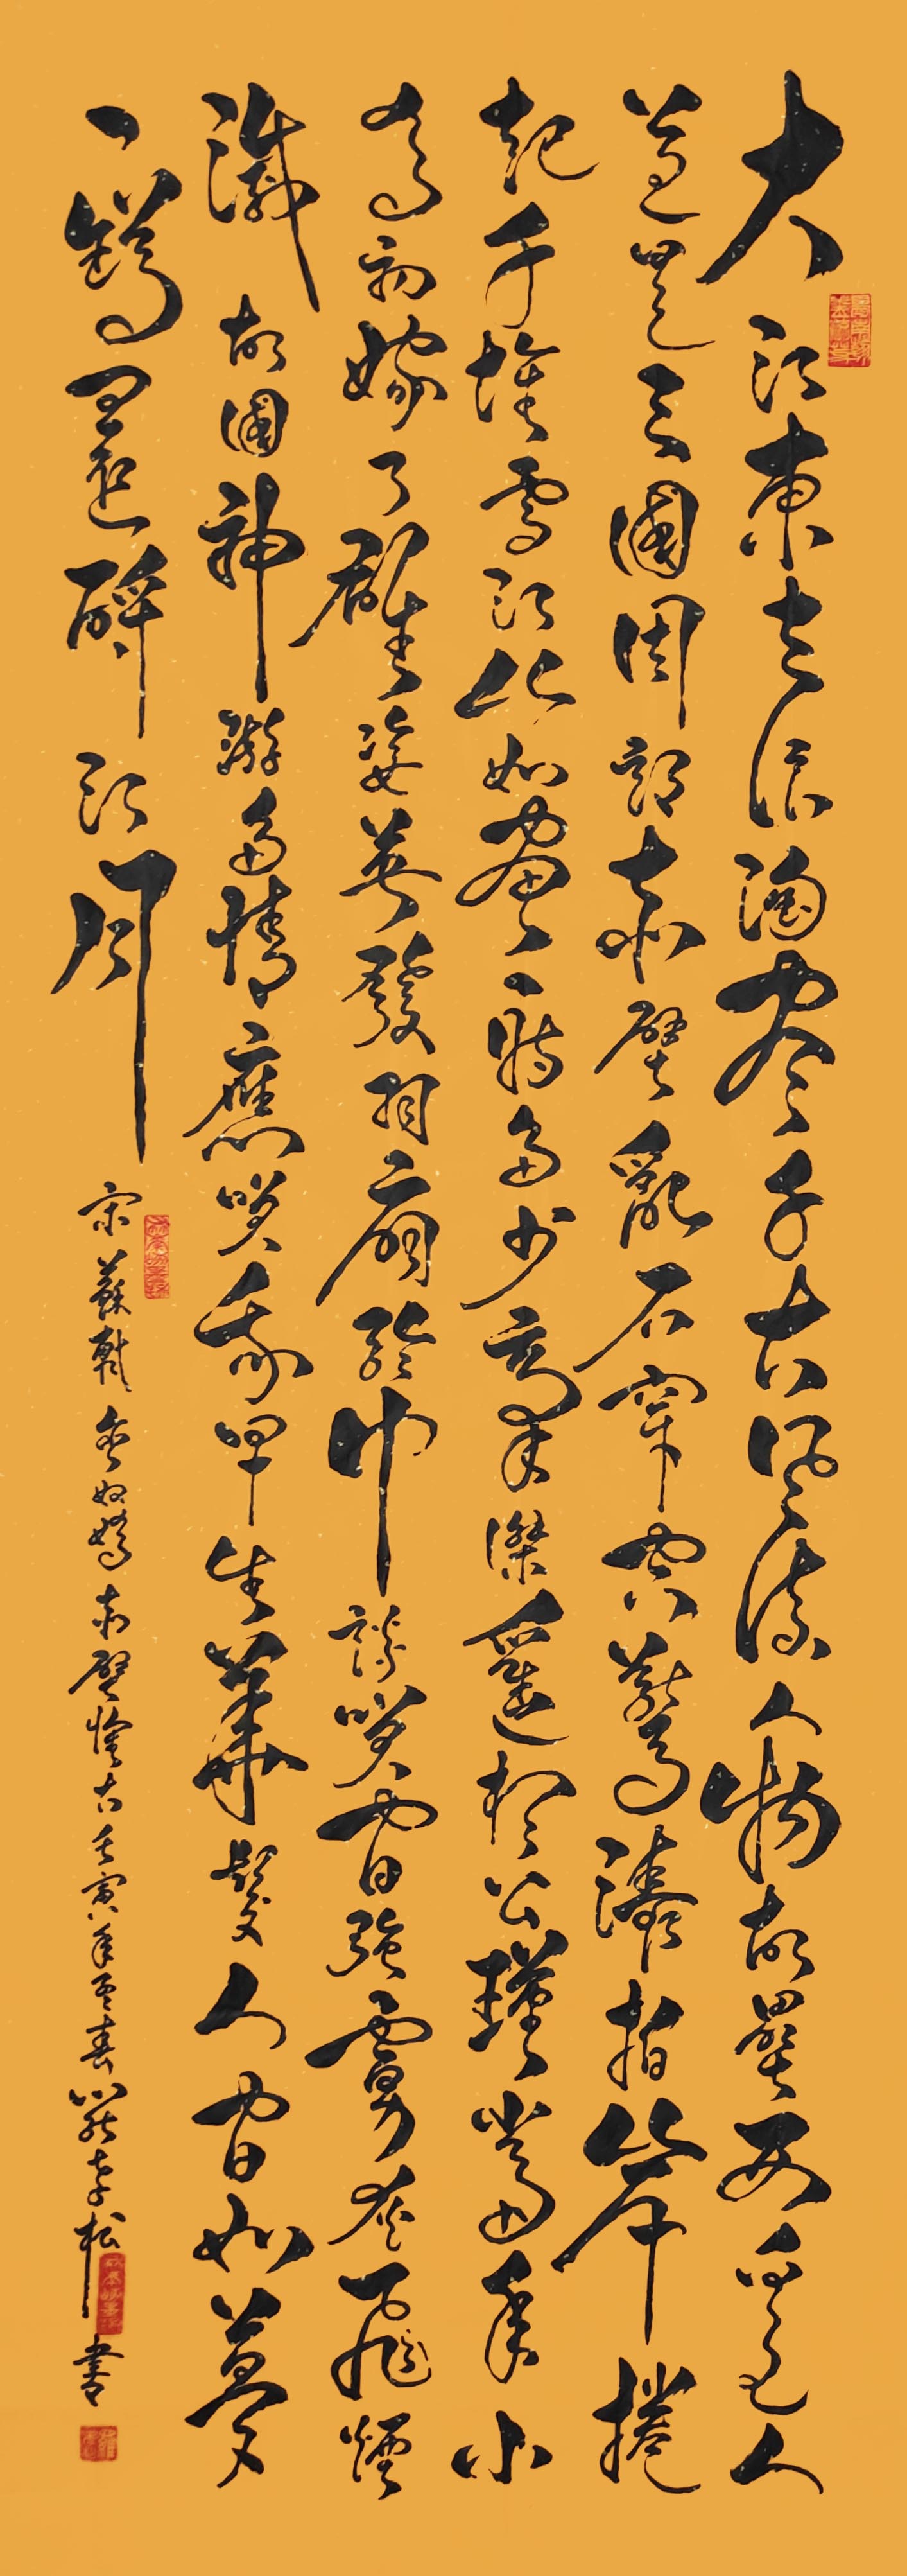 大江東去浪淘盡千古風流人物故壘西邊人
道是三國周郎赤壁亂石穿空驚濤拍岸捲
起千堆雪江山如畫一時多少豪傑遙想公瑾當年小
喬初嫁了雄姿英發羽扇綸巾談笑間強虜灰飛煙
滅故國神游多情應笑我早生華髮人間如夢
一罇還酹江月
宋蘇軾念奴嬌赤壁懷古壬寅年春李松書